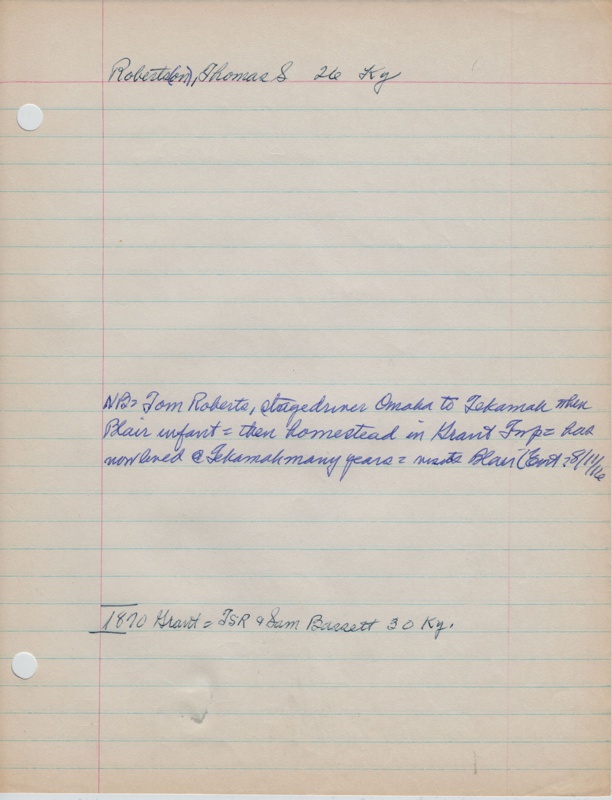 Roberts(on), Thomas S 26 Ky
NB= Tom Roberts, stagedriver Omaha to Tekamah when
Blair infant = then homestead in Grant Twp = has
now lived @ Tekamah many years = visits Blair (Ent: 8/11/16
1870 Grant = TSR & Sam Bassett 30 Ky.